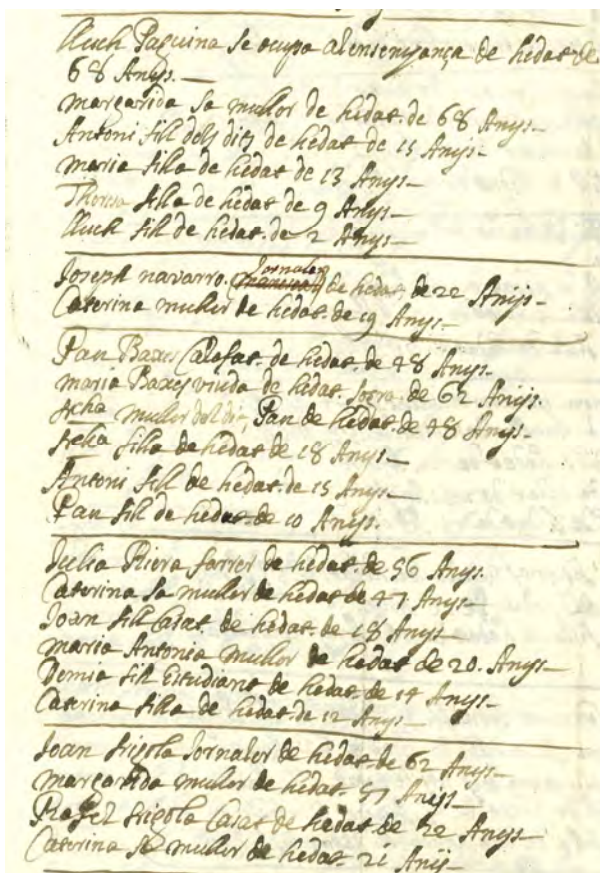 lluch Paguina se ocupa al ensenyança de hedat de
68 Anys.
margarida sa muller de hedat. de 68 Anys
Antoni fill dels dits de hedat de 15 Anys
maria filla de hedat de 13 Anys
Theresa filla de hedat de 9 Anys
lluch fill de hedat. de 2 Anys
Joseph navarro. Jornaler de hedat. de 22 Anys
Caterina muller de hedat. de 19 Anys
Pau Baxes Calafat. de hedat. de 48 Anys
maria Baxes viuda de hedat. sogra. de 62 Anys
muller del dit Pau de hedat. de 48 Anys
filla de hedat de 18 Anys
Antoni fill de hedat. de 15 Anys
Pau fill de hedat. de 10 Anys.
Julia Riera farrer de hedat. de 56 Anys.
Caterina sa muller de hedat de 47 Anys
Joan fill Casat de hedat. de 18 Anys
maria Antonia muller de hedat de 20. Anys
Demia fill Estudiant de hedat. de 14 Anys
Caterina filla de hedat. de 12 Anys
Joan frigola Jornaler de hedat de 62 Anys
margarida muller de hedat. 57 Anys
Rafel frigola Casat de hedat de 22 Anys
Caterina sa muller de hedat 21 Anys